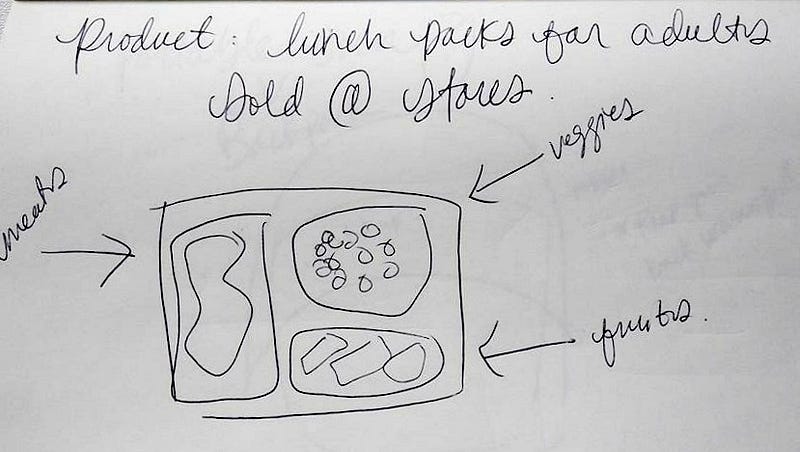 Product: lunch packs for adults
sold @ stores.
veggies
meats
fruits.